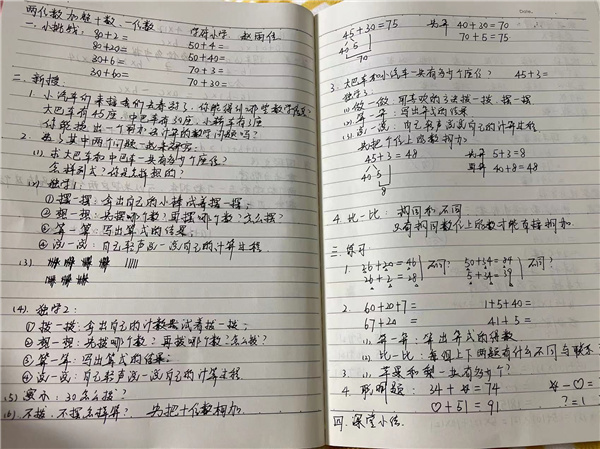 两位数加整十数、一位数
一、小挑战: 学府小学 赵雨佳
80+2= 50+4=
80+20= 50+40=
30+6= 70+3=
30+60= 70+30=
二、新授
大巴车有45座,中巴车有30座,小轿车有3座
你能提出一个用加法计算的数学问题吗?
(1) 求大巴车和中巴车一共有多少个座位?
怎样列式?你是怎样想的?
(2) 独学1:
① 摆一摆:拿出自己的小棒试着摆一摆;
② 想一想:先摆哪个数?再摆哪个数?怎么摆?
③ 算一算:写出算式的结果;
④ 说一说:自己轻声说一说自己的计算过程.
(3)
(4). 独学2:
① 拨一拨:拿出自己的计数器试着拨一拨;
② 想一想:先拨哪个数?再拨哪个数?怎么拨?
③ 算一算:写出算式的结果;
④ 说一说:自己轻声说一说自己的计算过程
(5) 演示:30怎么拨?
(6). 不拨、不摆怎样算? 先把十位数相加
45+30=75 先算 40+30=70
40 5 70+5=75
70
3. 大巴车和小汽车一共有多少个座位? 45+3=
独学3
(1) 做一做:用喜欢的方法拨一拨、摆一摆
(2) 算一算:写出算式的结果
(3) 说一说:自己轻声说说自己的计算过程.
先把个位上的数相加
45+3=48 先算 5+3=8
40 5 再算 40+8=48
8
4. 比一比: 相同和不同
只有相同数位上的数才能直接相加
三、练习
1. 26+20=46 不同? 50+34=84 不同?
26+2=28 5+34=39
2. 60+20+7= 1+5+40=
67+20= 41+5=
(1) 算一算:算出算式的得数
(2) 比一比:每组上下两题有什么不同与联系
3. 苹果和梨一共有多少个?
4. 34+ =74
♡+51=91 -♡=
?=1
四、课堂小结.